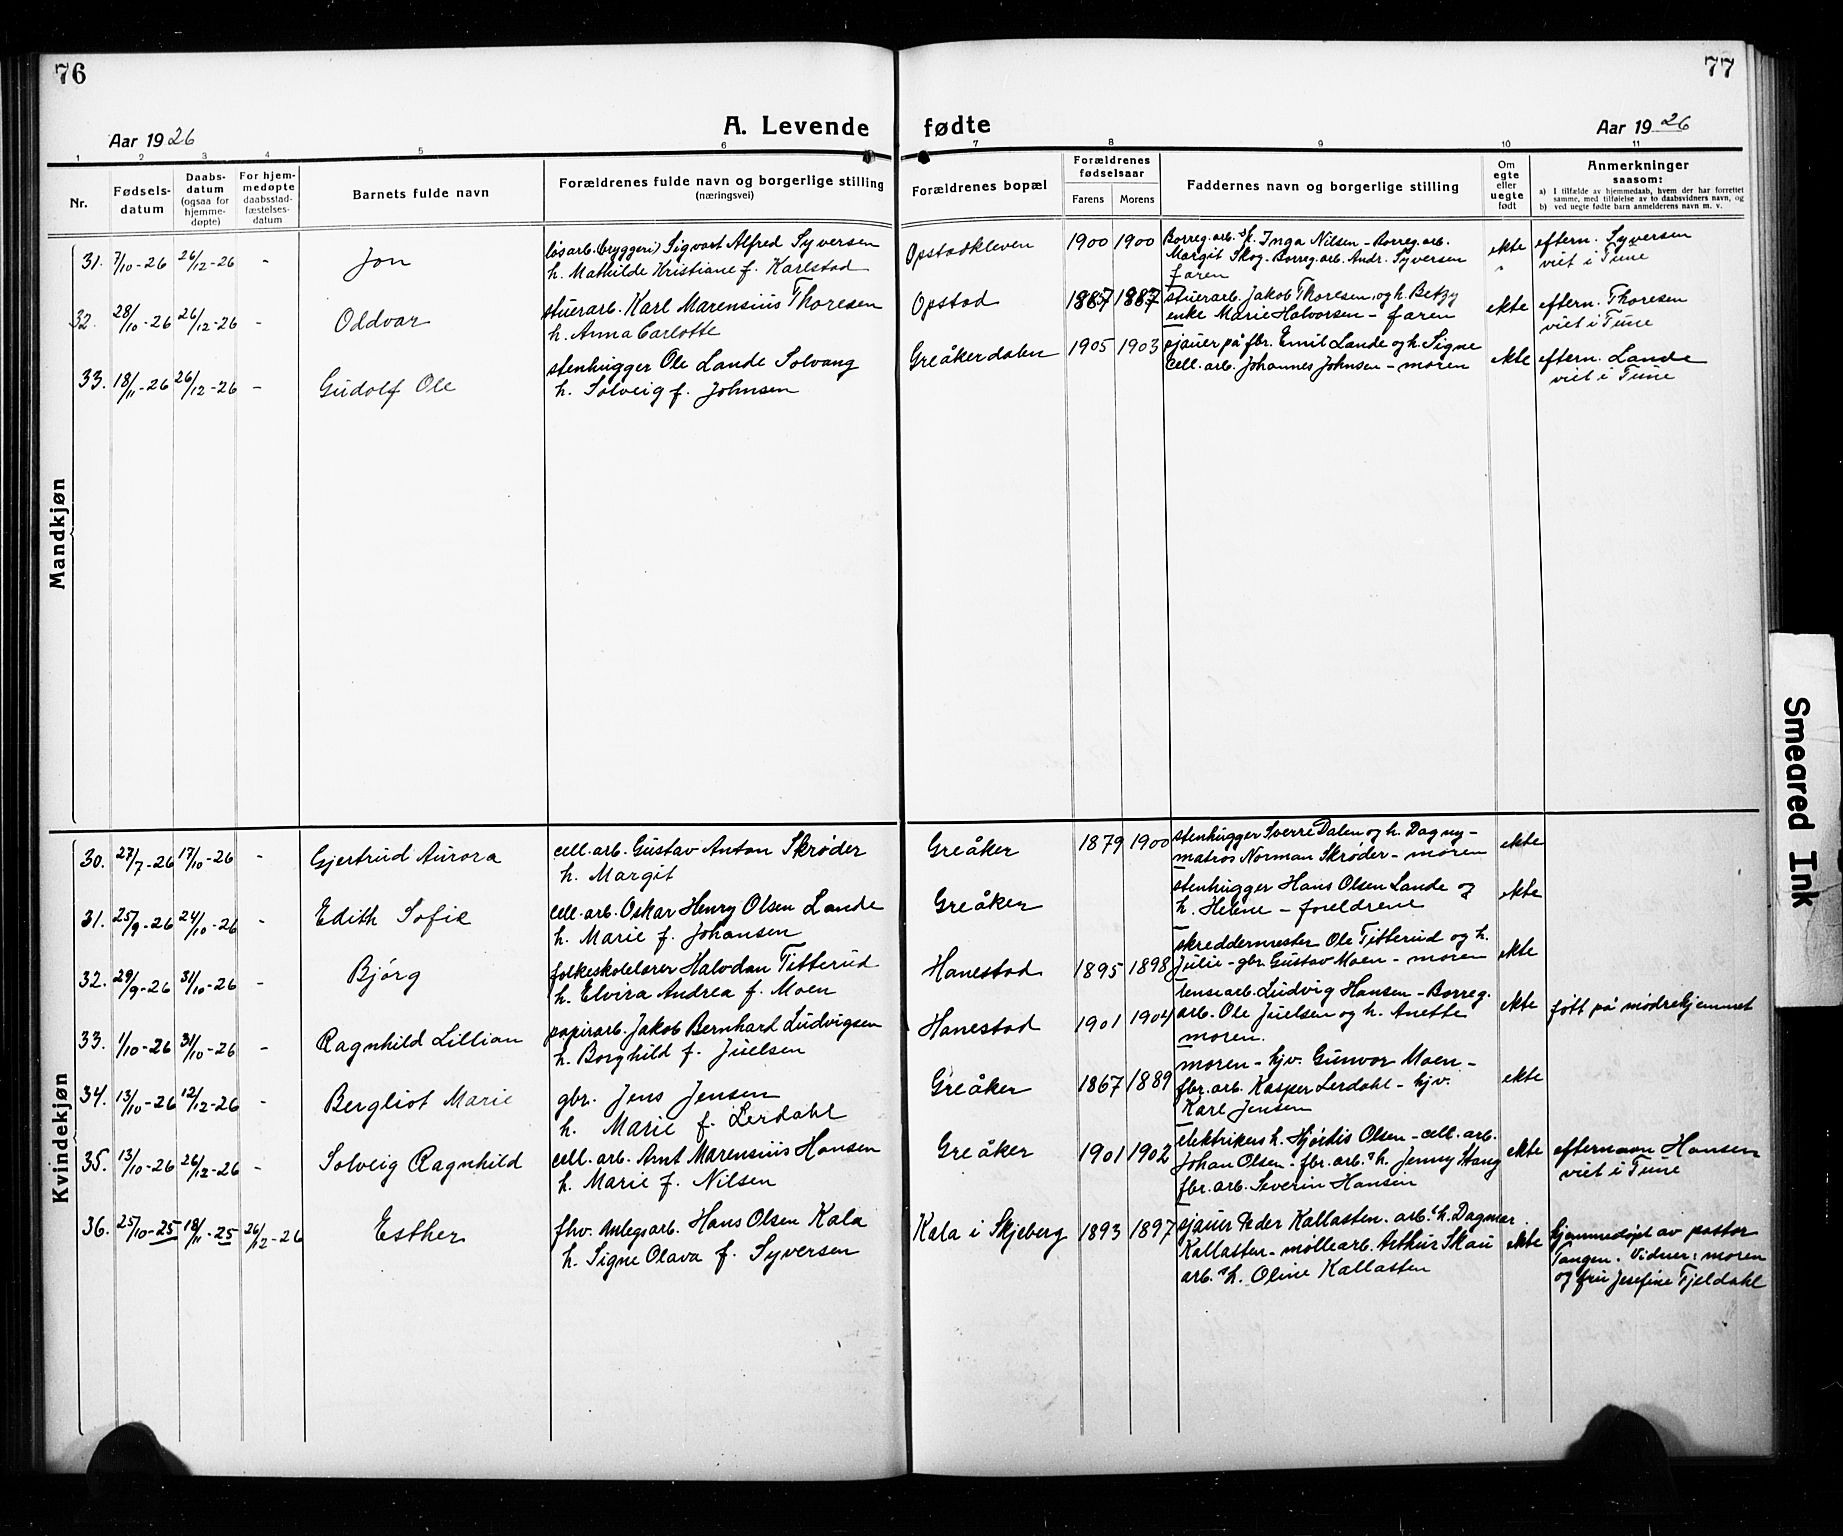 76
77
Aar 1926
A. Levende fødte
Aar 1926
1 2 3 4 5 6 7 8 9 10 11
Nr.
Fødsels-
datum
Daabs-
datum
(ogsaa for
hjemme-
døpte)
For hjem-
medøpte
daabsstad-
fæstelses-
datum
Barnets fulde navn
Forældrenes fulde navn og borgerlige stilling
(næringsvei)
Forældrenes bopæl
Forældrenes
fødselsaar
Farens Morens
Faddernes navn og borgerlige stilling
Om
egte
eller
uegte
født
Anmerkninger
saasom:
a) I tilfælde av hjemmedaab, hvem der har forrettet
samme, med tilføielse av to daabsvidners navn, og
b) ved uegte fødte barn anmelderens navn m. v.
Mandkjøn
31. 7/10-26 26/12-26 - Jon
løsarb. (bryggeri) Sigvart Alfred Syversen
h. Mathilde Kristiane f. Karlstad
Opstadkleven 1900 1900
Borreg. arb. s h. Inga Nilsen - Borreg. arb.
Margit Skog - Borreg. arb. Andr. Syversen
faren
ekte
eftern. Syversen
viet i Tune
32. 28/10-26 26/12-26 - Oddvar
stuerarb. Karl Marensius Thoresen
h. Anna Carlotte
Opstad 1887 1887
stuerarb. Jakob Thoresen, og h. Betzy
enke Marie Halvorsen - faren
ekte
eftern. Thoresen
viet i Tune
33. 18/11-26 26/12-26 - Gudolf Ole
stenhugger Ole Lande Solvang
h. Solveig f. Johnsen
Greåkerdalen 1905 1903
sjauer på fbr. Emil Lande og h. Signe
cell. arb. Johannes Johnsen - moren
ekte
eftern. Lande
viet i Tune
Kvindekjøn
30. 27/7-26 17/10-26 - Gjertrud Aurora
cell. arb. Gustav Anton Skrøder
h. Margit
Greåker 1879 1900
stenhugger Sverre Dalen og h. Dagny -
matros Norman Skrøder - moren
ekte
31. 25/9-26 24/10-26 - Edith Sofie
cell. arb. Oskar Henry Olsen Lande
h. Marie f. Johansen
Greåker
stenhugger Hans Olsen Lande og
h. Helene - foreldrene
ekte
32. 29/9-26 31/10-26 - Bjørg
folkeskolelærer Halvdan Titterud
h. Elvira Andrea f. Moen
Hanestad 1895 1898
skreddermester Ole Titterud og h.
Julie - gbr. Gustav Moen - moren
ekte
33. 1/10-26 31/10-26 - Ragnhild Lillian
papirarb. Jakob Bernhard Ludvigsen
h. Borghild f. Juelsen
Hanestad 1901 1904
lensearb. Ludvig Hansen - Borreg.
arb. Ole Juelsen og h. Anette
moren.
ekte
født på mødrehjemmet
34. 13/10-26 12/12-26 - Bergliot Marie
gbr. Jens Jensen
h. Marie f. Lerdahl
Greåker 1867 1889
moren - hjv. Gunvor Moen -
fbr. arb. Kasper Lerdahl - hjv.
Karl Jensen
ekte
35. 13/10-26 26/12-26 - Solveig Ragnhild
cell. arb. Arnt Marensius Hansen
h. Marie f. Nilsen
Greåker 1901 1902
elektrikers h. Hjørdis Olsen - cell. arb.
Johan Olsen - fbr. arb. s h. Jenny Stang
fbr. arb. Severin Hansen
ekte
efternavn Hansen
viet i Tune
36. 25/10-25 18/11-25 26/12-26 Esther
fhv. Anlegsarb. Hans Olsen Kala
h. Signe Olava f. Syversen
Kala i Skjeberg 1893 1897
sjauer Peder Kallasten. arb. s h. Dagmar
Kallasten - møllearb. Arthur Skau
arb. s h. Oline Kallasten
ekte
hjemmedøpt av pastor
Tangen. Vidner: moren
og fru Josefine Fjeldahl
Smeared Ink